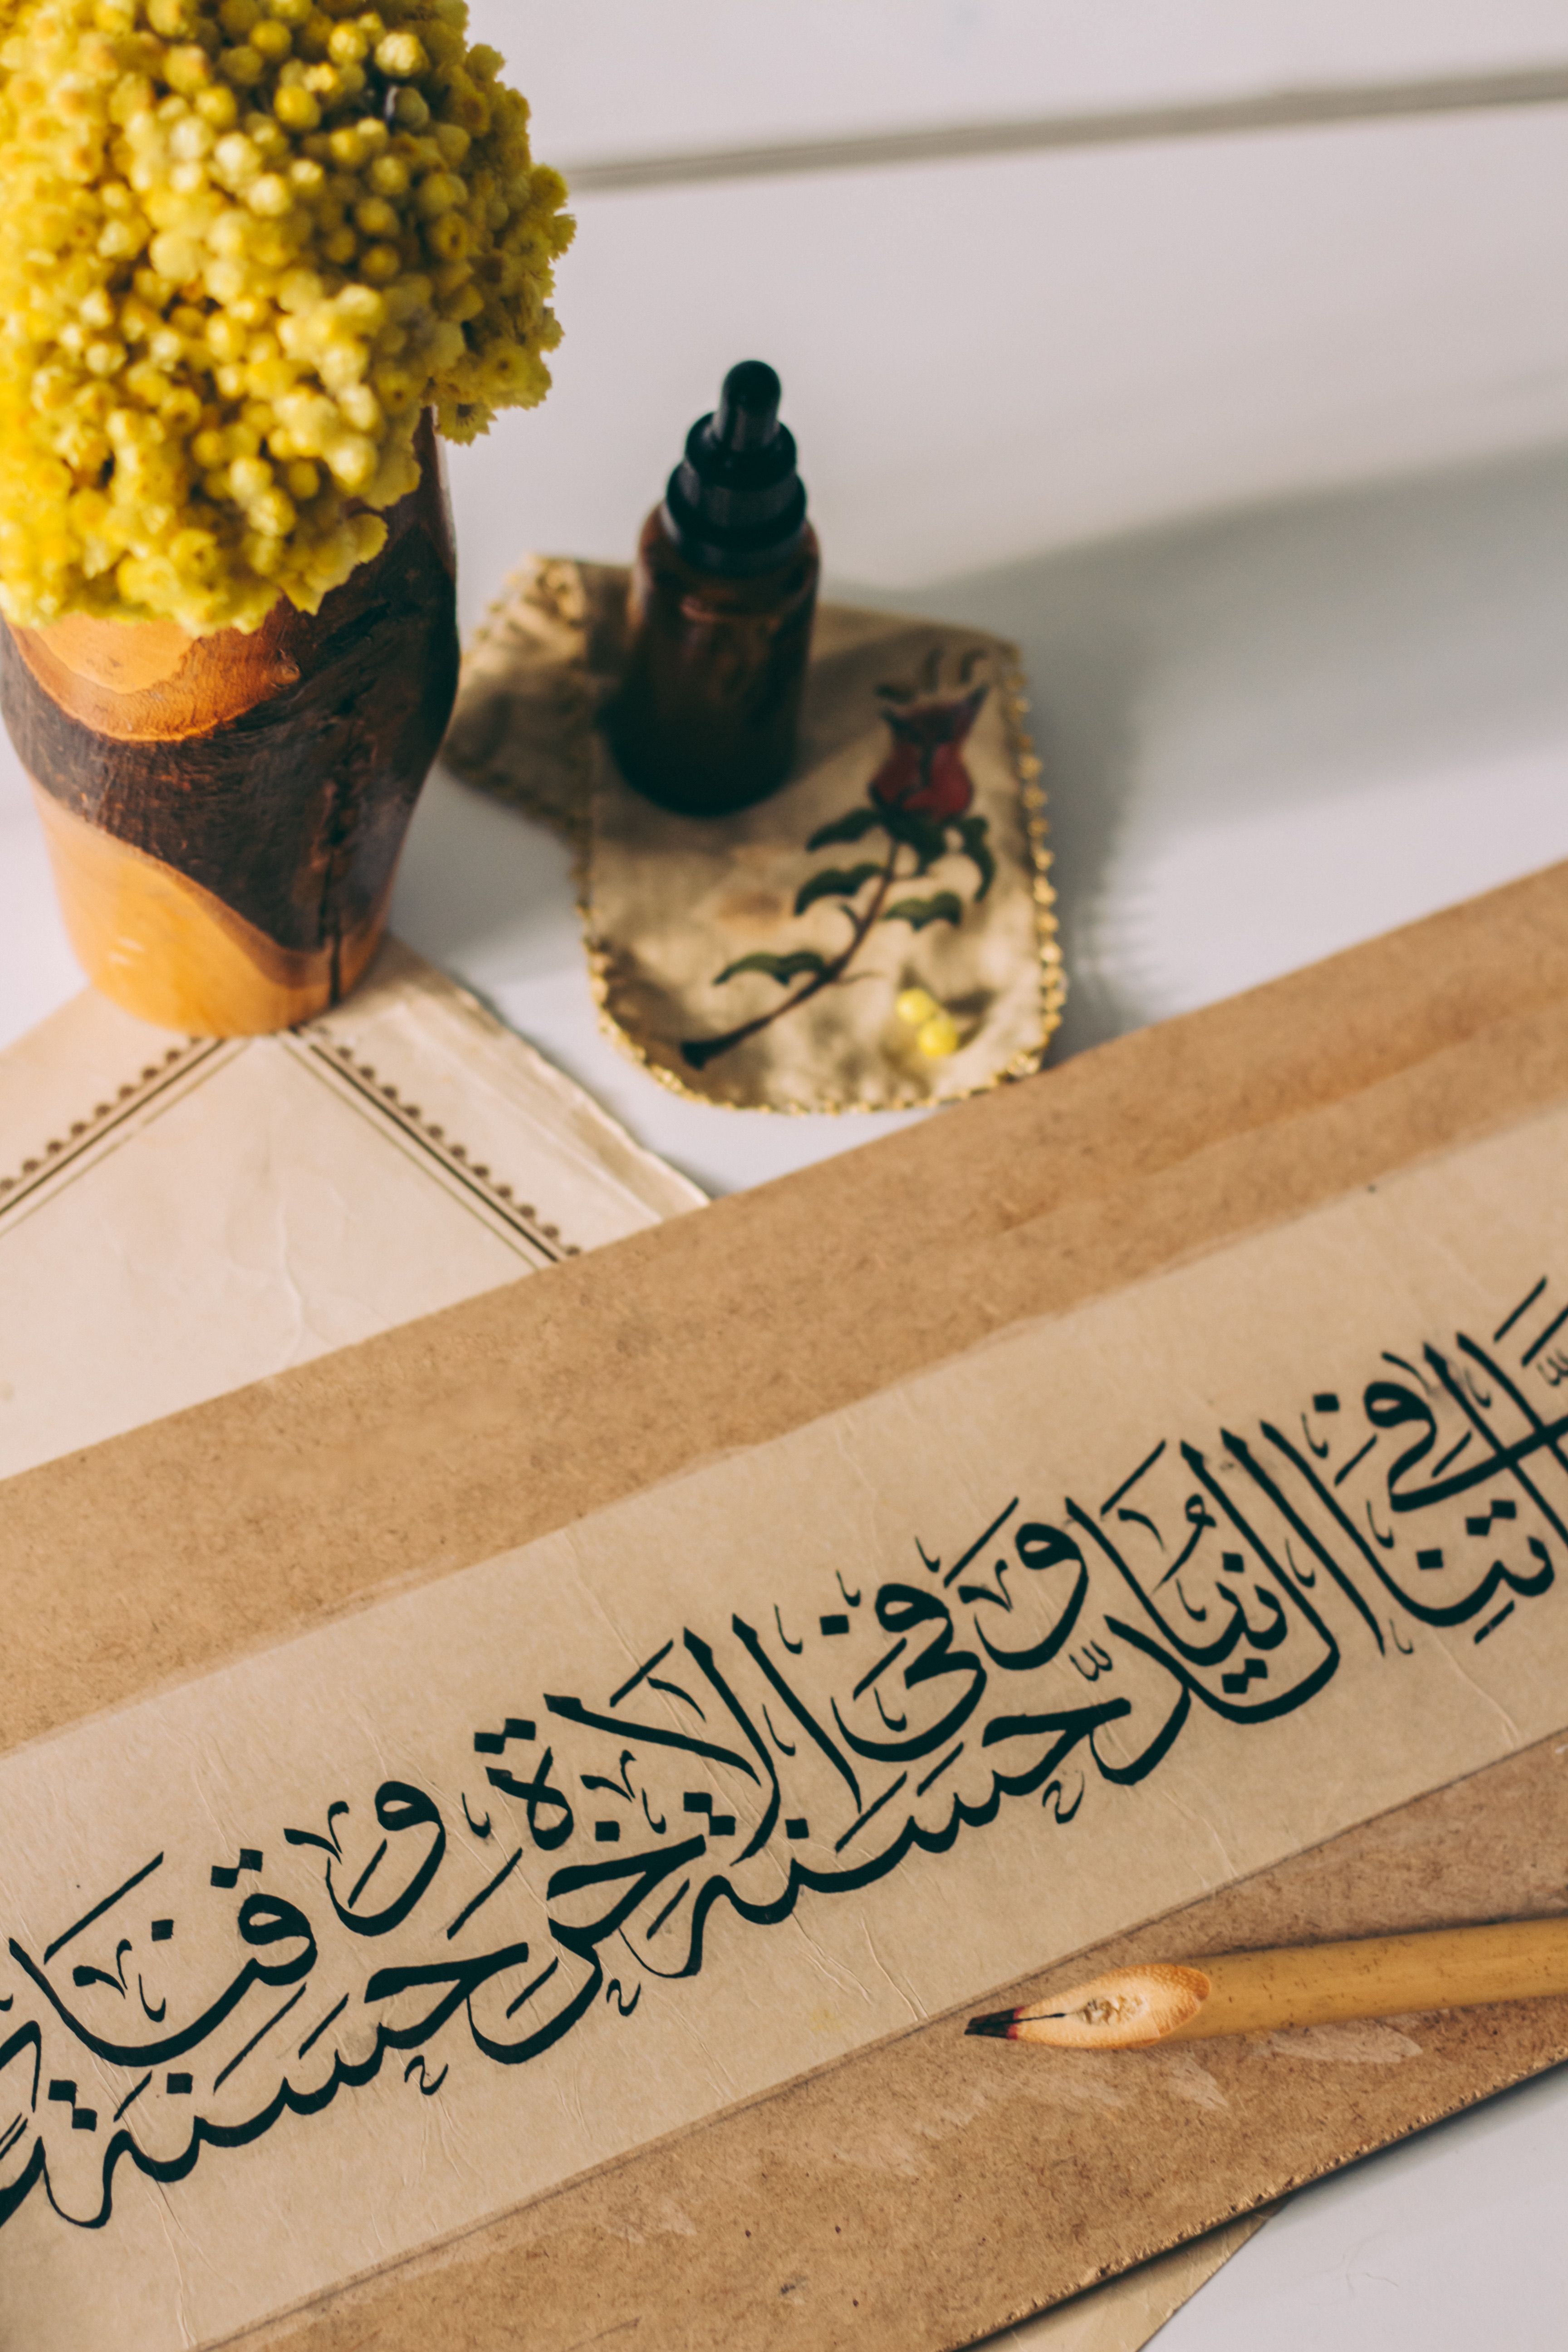 اٰتِنَا فِي الدُّنْيَا حَسَنَةً وَفِي الْاٰخِرَةِ حَسَنَةً وَقِنَا